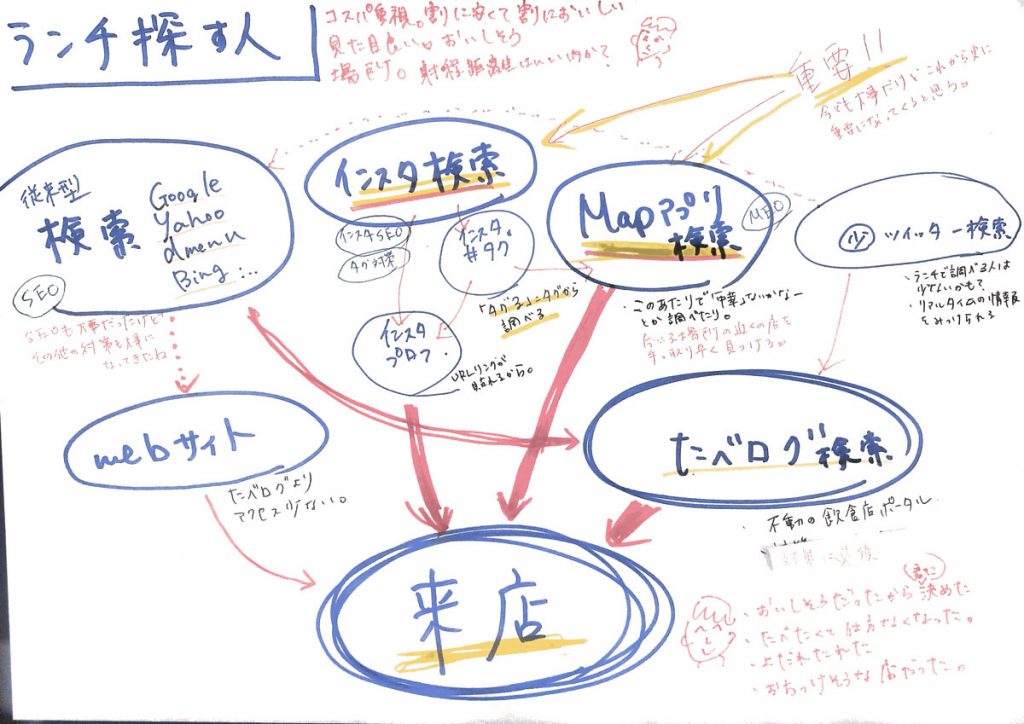 ランチ探す人
コスパ重視。割に安くて割においしい
見た目良い。おいしそう
場所。射程距離はいい内か?
重要!!
今でも大事だけどこれから更に
重要になってくると思う。
従来型
検索
Google
Yahoo
dmenu
Bing…
SEO
SEOも大事だったけど
その他の対策も大事に
なってきたね
インスタ検索
インスタSEO
タグ対策
インスタ
#タグ
「タグる」=タグから
調べる
インスタ
プロフ
URLリンクが
貼れるから。
Mapアプリ
検索
MEO
・このあたりで「中華」ないかなー
とか調べたり。
今いる場所の近くの店を
手っ取り早く見つける。
少 ツイッター検索
・ランチで調べる人は
少ないかも?
・リアルタイムの情報
をみつけられる
webサイト
たべログより
アクセス少ない。
たべログ検索
・不動の飲食店ポータル
来店
・おいしそうだったから決めた
・たべたくて仕方なくなった。
・よだれたれた
・おちつけそうな店だった。